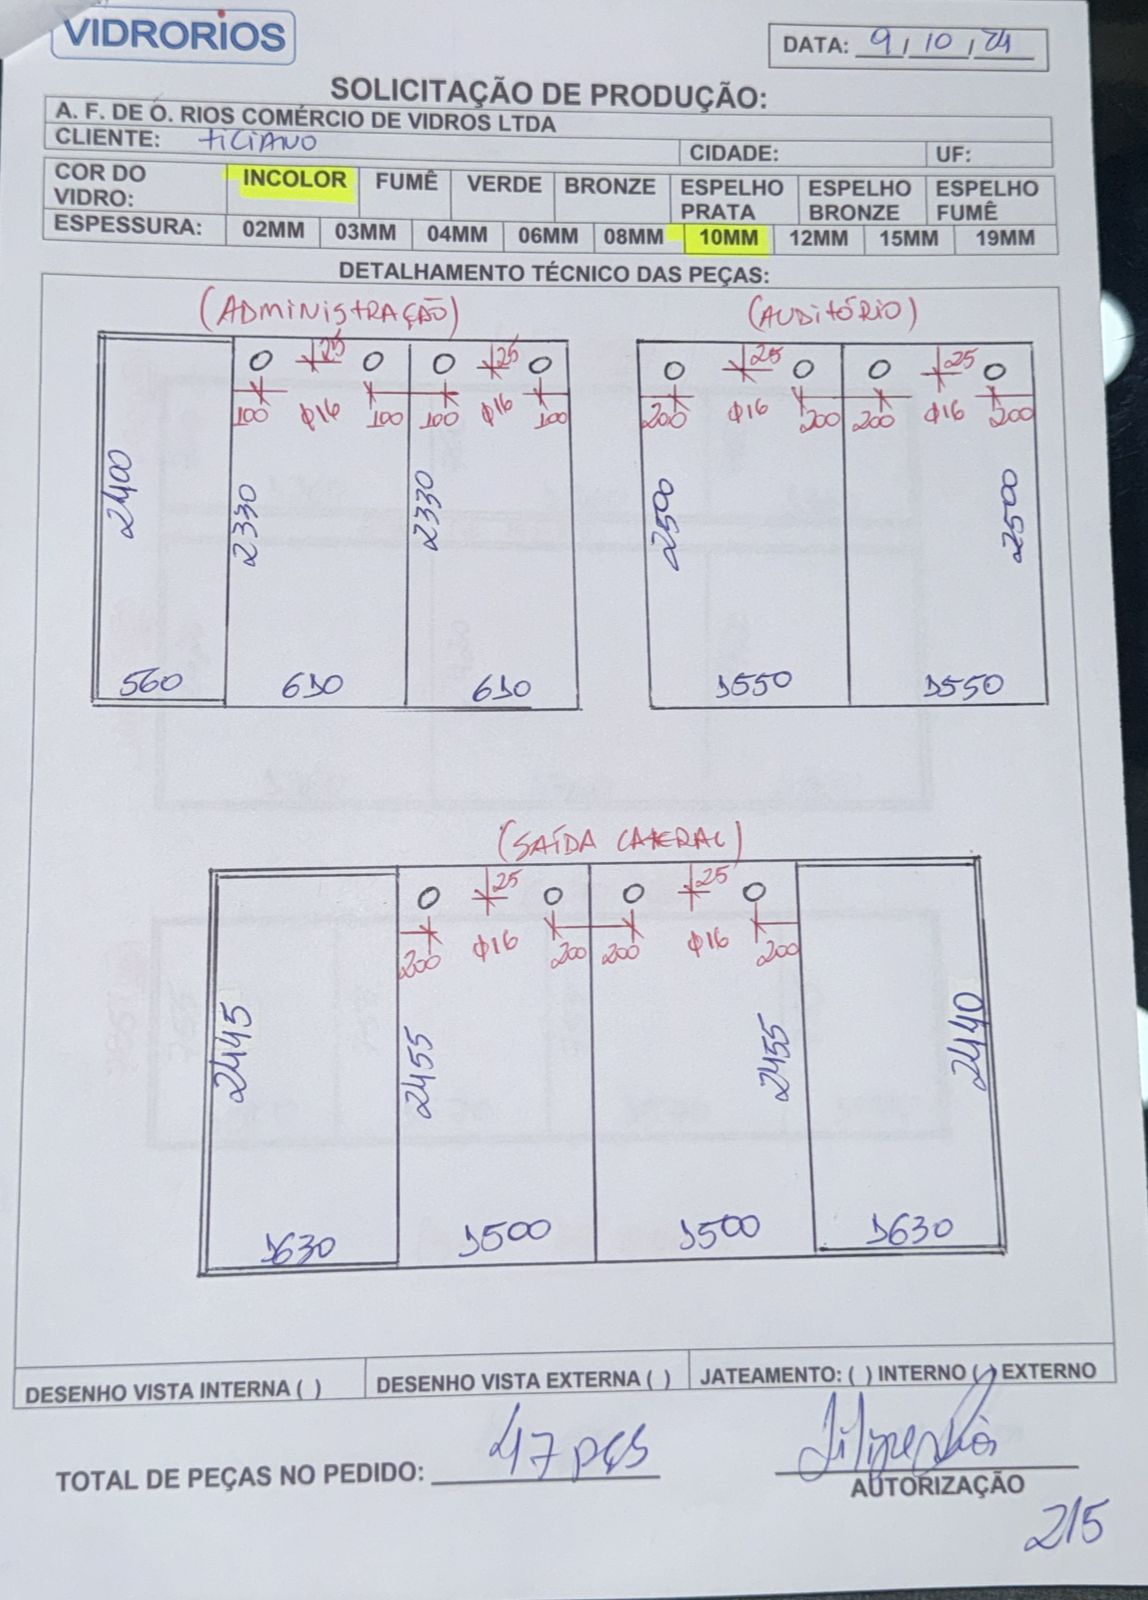 VIDRORIOS
DATA: 9/10/24
SOLICITAÇÃO DE PRODUÇÃO:
A. F. DE O. RIOS COMÉRCIO DE VIDROS LTDA
CLIENTE: TICIANO CIDADE: UF:
COR DO VIDRO: INCOLOR FUMÊ VERDE BRONZE ESPELHO PRATA ESPELHO BRONZE ESPELHO FUMÊ
ESPESSURA: 02MM 03MM 04MM 06MM 08MM 10MM 12MM 15MM 19MM
DETALHAMENTO TÉCNICO DAS PEÇAS:
(ADMINISTRAÇÃO)
25 25
100 φ16 100 100 φ16 100
2400 2330 2330
560 610 610
(AUDITÓRIO)
25 25
200 φ16 200 200 φ16 200
2500 2500
1550 1550
(SAÍDA LATERAL)
25 25
200 φ16 200 200 φ16 200
2445 2455 2455 2440
1630 1500 1500 1630
DESENHO VISTA INTERNA ( ) DESENHO VISTA EXTERNA ( ) JATEAMENTO: ( ) INTERNO ( ) EXTERNO
TOTAL DE PEÇAS NO PEDIDO: 47 pçs
AUTORIZAÇÃO
2/5